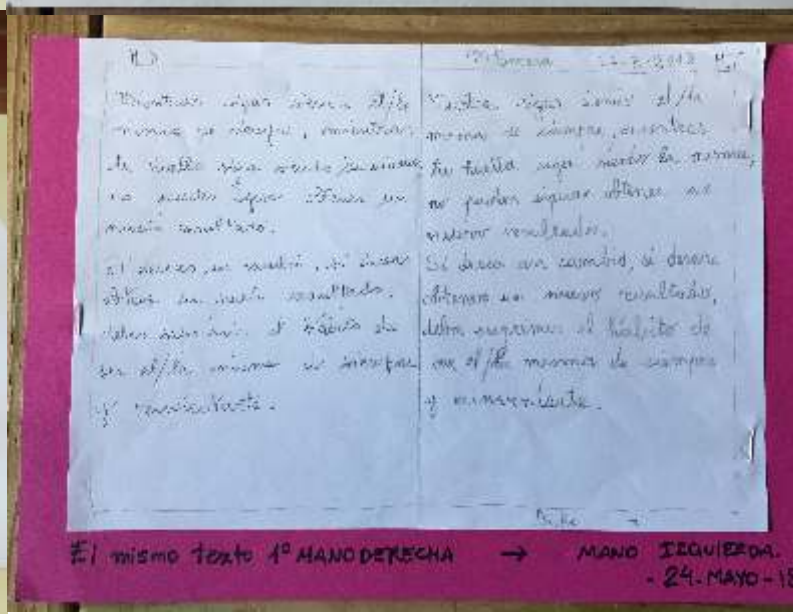 MD
Mientras sigas siendo el/la
misma de siempre, mientras
tu huella siga siendo la misma,
no puedes seguir obtener un
nuevo resultado.
si deseas un cambio, si deseas
obtener un nuevo resultado,
debes suprimir el hábito de
ser el/la misma de siempre
y reinventarte.
Mientras sigas siendo el/la
misma de siempre, mientras
tu huella siga siendo la misma,
no puedes seguir obtener un
nuevo resultado.
Si desea un cambio, si desea
obtener un nuevo resultado,
debes suprimir el hábito de
ser el/la misma de siempre
y reinventarte.
El mismo texto 1º MANO DERECHA → MANO IZQUIERDA.
- 24-MAYO-18